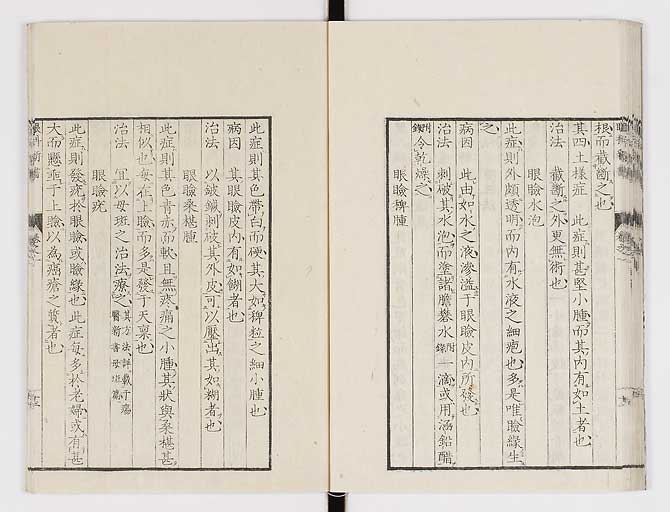 根而截斷之也
其四土樣症 此症則甚堅小腫而其内有如土者也
治法 截斷之外更無術也
眼瞼水泡
此症則外頗透明而内有水液之細疱也多是唯瞼緣生
之
病因 此由如水之液滲溢于眼瞼皮内所發也
治法 刺破其水泡而塗諸膽礬水附錄一滴或用涵鉛醋
附錄令乾燥之
眼瞼稗腫
此症則其色帶白而硬其大如稗粒之細小腫也
病因 其眼瞼皮内有如餬者也
治法 以鈹鍼刺破其外皮可以壓出其如糊者也
眼瞼桑椹腫
此症則其色青赤而軟且無疼痛之小腫其狀與桑椹甚
相似也每在上瞼而多是發于天稟也
治法 宜以母斑之治法療之其方法詳載于瘍醫新書母斑篇
眼瞼疣
此症則發疣於眼瞼或瞼緣也此症每多於老婦或有甚
大而懸垂于上瞼以為